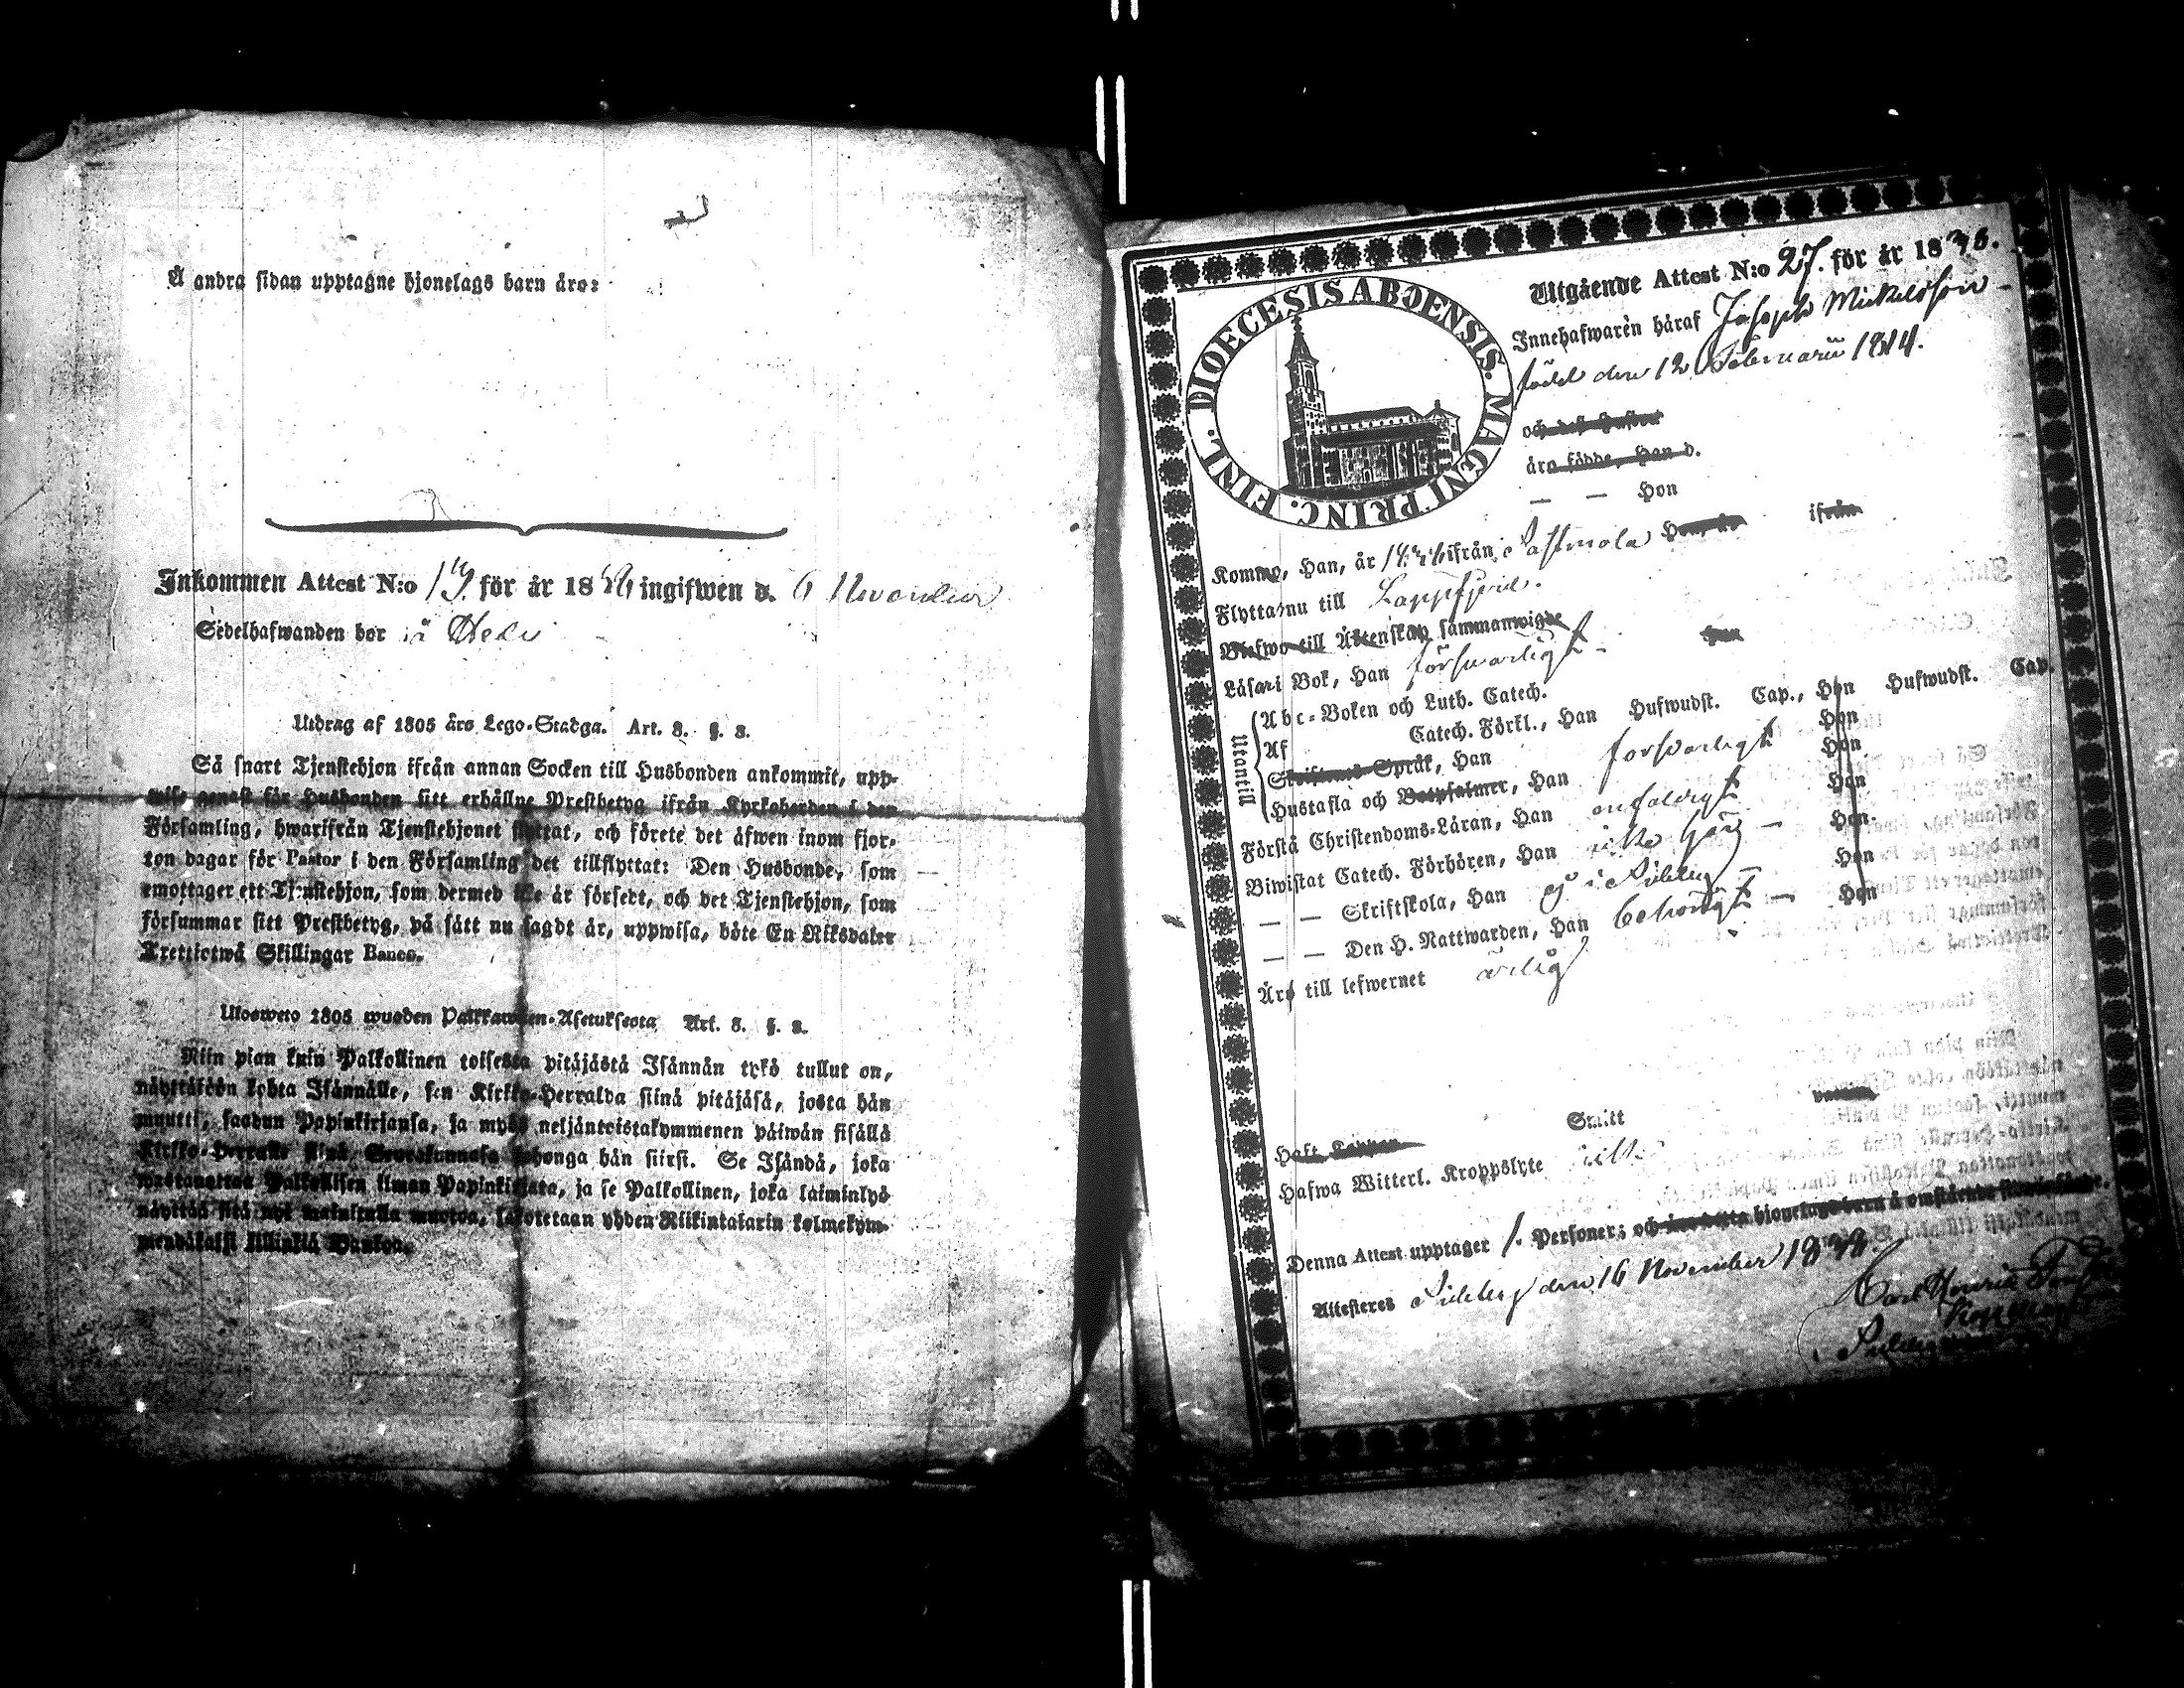 Å andra sidan upptagne hjonelags barn äro:
Inkommen Attest N:o 13. för år 1836 ingifwen d. 6 November
Sedelhafwanden bor i
Utdrag af 1805 års Lego-Stadga. Art. 8. §. 8.
Så snart Tjenstehjon ifrån annan Socken till Husbonden ankommit, upp-
wise genast för Husbonden sitt erhållne Prestbetyg ifrån Kyrkoherden i den
Församling, hwarifrån Tjenstehjonet flyttat, och förete det äfwen inom fjor-
ton dagar för Pastor i den Församling det tillflyttat: Den Husbonde, som
emottager ett Tjenstehjon, som dermed icke är försedt, och det Tjenstehjon, som
försummar sitt Prestbetyg, på sätt nu sagdt är, uppwisa, böte En Riksdaler
Trettiotwå Skillingar Banco.
Ulosweto 1805 wuoden Palkkawäen-Asetuksesta Art. 8. §. 8.
Niin pian kuin Palkollinen toisesta pitäjästä Isännän tykö tullut on,
näyttäköön kohta Isännälle, sen Kirkko-Herralda siinä pitäjäsä, josta hän
muutti, saadun Papinkirjansa, ja myös neljäntoistakymmenen päiwän sisällä
Kirkko-Herralle siinä Seurakunnasa johonga hän siirsi. Se Isändä, joka
wastaanottaa Palkollisen ilman Papinkirjata, ja se Palkollinen, joka laiminlyö
näyttää sitä nyt mainitulla muotoa, sakotetaan yhden Riikintalarin kolmekym-
mendäkaksi killinkiä Bankoa.
DIOECESIS ABOENSIS. MAGNI PRINC. FINL.
Utgående Attest N:o 27. för år 1836.
Innehafwaren häraf Joseph Mickelsson
född den 12 Februarii 1814.
och dess Hustru
äro födde, Han d.
— — Hon
Kommo, Han, år ifrån Sastmola Hon, år ifrån
Flytta nu till Lappfjerd.
Blefwo till Äktenskap sammanwigde
Läsa i Bok, Han försvarligt - Hon
Utantill
Abc-Boken och Luth. Catech.
Af Catech. Förkl., Han Hufwudst. Cap., Hon Hufwudst. Cap.
Skriftenes Språk, Han Hon
Hustafla och Botpsalmer, Han försvarligt Hon
Förstå Christendoms-Läran, Han enfaldigt Hon
Biwistat Catech. Förhören, Han icke här — Hon
— — Skriftskola, Han ej i Sideby Hon
— — Den H. Nattwarden, Han behörigt — Hon
Äro till lefwernet ärligt
Haft Koppor Smitt vaccin
Hafwa Witterl. Kroppslyte
Denna Attest upptager 1. Personer; och äro detta hjonelags barn å omstående sida införde.
Attesteres Sideby den 16 November
Carl Henric